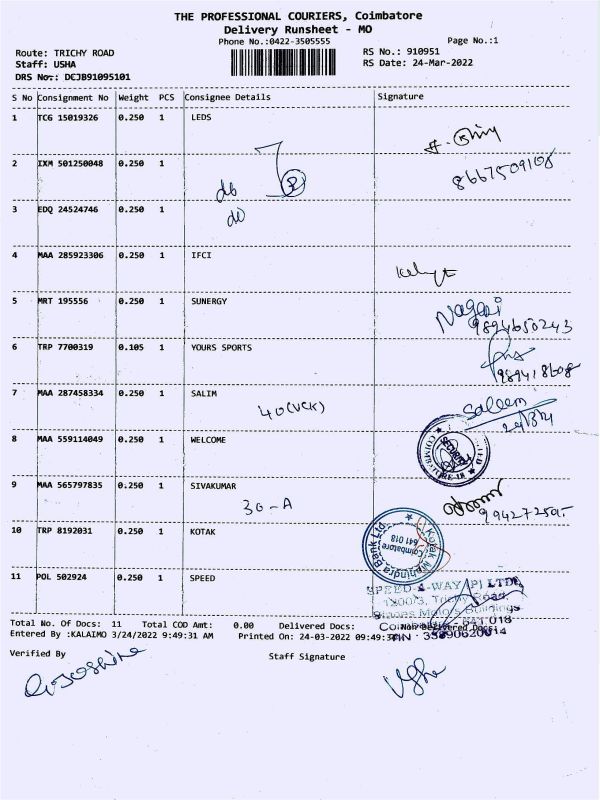 THE PROFESSIONAL COURIERS, Coimbatore
Delivery Runsheet - MO
Phone No.:0422-3505555
Page No.:1
Route: TRICHY ROAD
RS No.: 910951
Staff: USHA
RS Date: 24-Mar-2022
DRS No.: DCJB91095101
S No Consignment No Weight PCS Consignee Details Signature
1 TCG 15019326 0.250 1 LEDS
2 IXM 501250048 0.250 1
8667509108
db
3 EDQ 24524746 0.250 1
do
4 MAA 285923306 0.250 1 IFCI
5 MRT 195556 0.250 1 SUNERGY
Nagai
9894650243
6 TRP 7700319 0.105 1 YOURS SPORTS
989418608
7 MAA 287458334 0.250 1 SALIM
40(VCK)
Saleem
8 MAA 559114049 0.250 1 WELCOME
SECURITY
9 MAA 565797835 0.250 1 SIVAKUMAR
30-A
10 TRP 8192031 0.250 1 KOTAK
Kotak Mahindra Bank Ltd.
Coimbatore
641 018
11 POL 502924 0.250 1 SPEED
SPEED-A-WAY (P) LTD.
1200/3, Trichy Road
Total No. Of Docs: 11 Total COD Amt: 0.00 Delivered Docs: Non Delivered Docs:
Entered By :KALAIMO 3/24/2022 9:49:31 AM Printed On: 24-03-2022 09:49:3
Verified By
Staff Signature
Usha